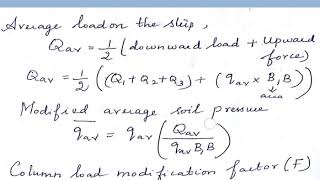 Average load on the strip,
Qav = 1/2 (downward load + Upward force)
Qav = 1/2 ((Q1 + Q2 + Q3) + (qav × B1 B))
area
Modified average soil pressure
qav = qav (Qav / qav B1 B)
Column load modification factor (F)